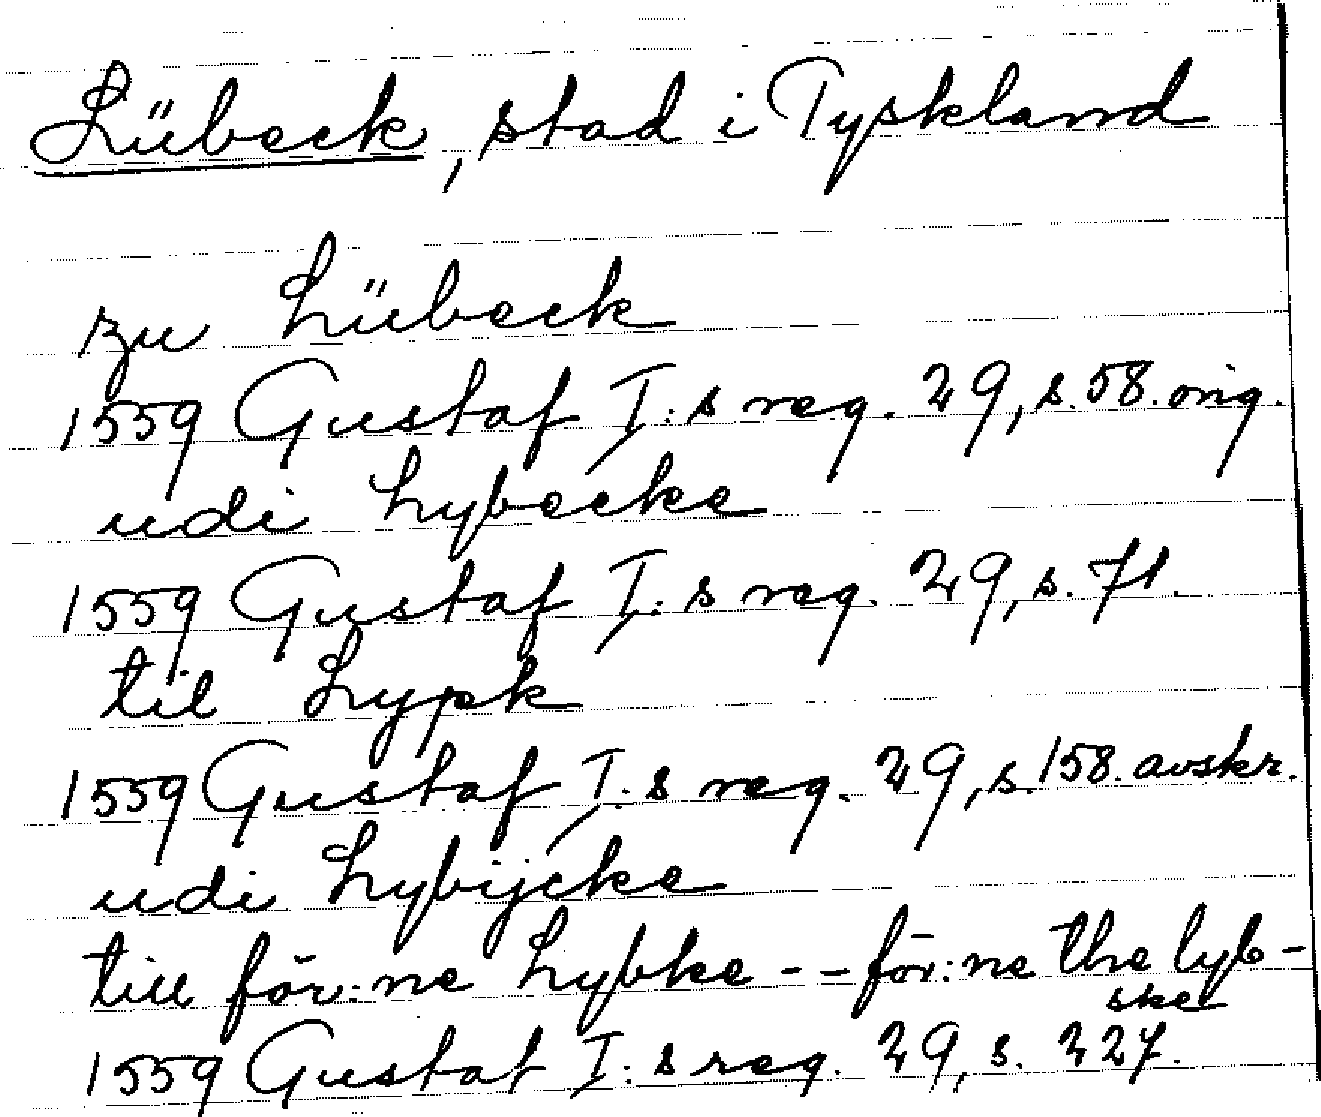 Lübeck, stad i Tyskland
zu Lübeck
1559 Gustaf I:s reg. 29, s. 58. orig.
udi Lybecke
1559 Gustaf I:s reg. 29, s. 71.
til Lypk
1559 Gustaf I:s reg. 29, s. 158. avskr.
udi Lybijcke
till för:ne Lybke - - för:ne the lyb-
ske
1559 Gustaf I:s reg. 29, s. 327.